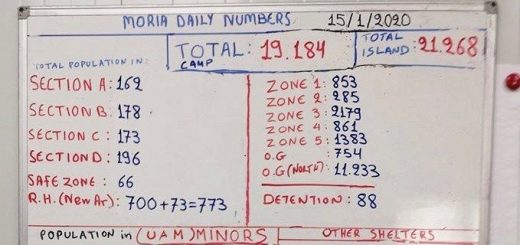 MORIA DAILY NUMBERS 15/1/2020
TOTAL CAMP : 19.184
TOTAL ISLAND : 21.268
TOTAL POPULATION IN:
SECTION A : 162
SECTION B : 178
SECTION C : 173
SECTION D : 196
SAFE ZONE : 66
R.H. (New Ar) : 700+73=773
ZONE 1 : 853
ZONE 2 : 285
ZONE 3 : 2179
ZONE 4 : 861
ZONE 5 : 1383
O.G : 754
O.G (NORTH) : 11.233
DETENTION : 88
POPULATION in (UAM) MINORS
OTHER SHELTERS